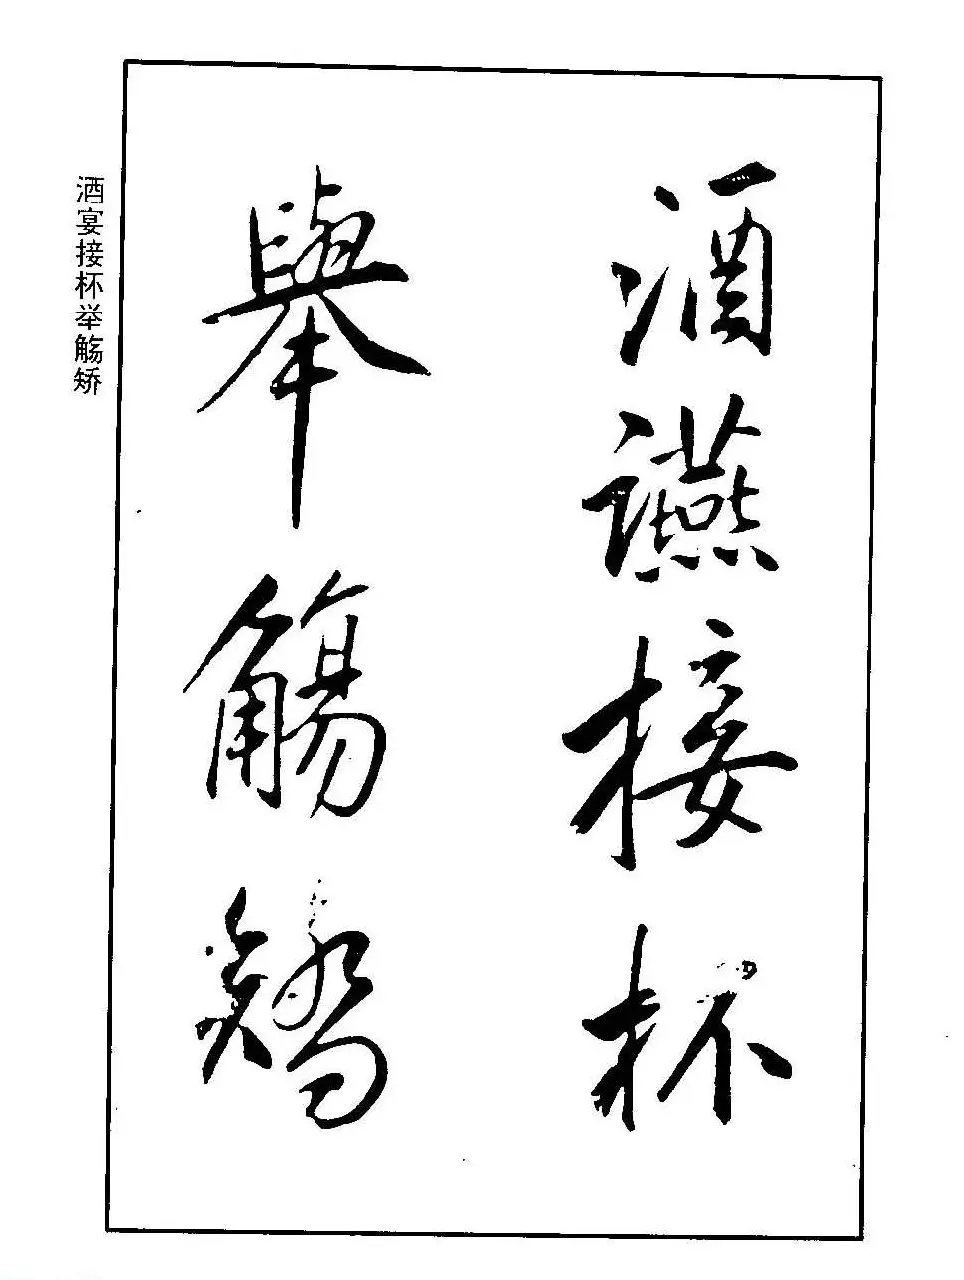 酒讌接杯
舉觴矯
酒宴接杯举觞矫